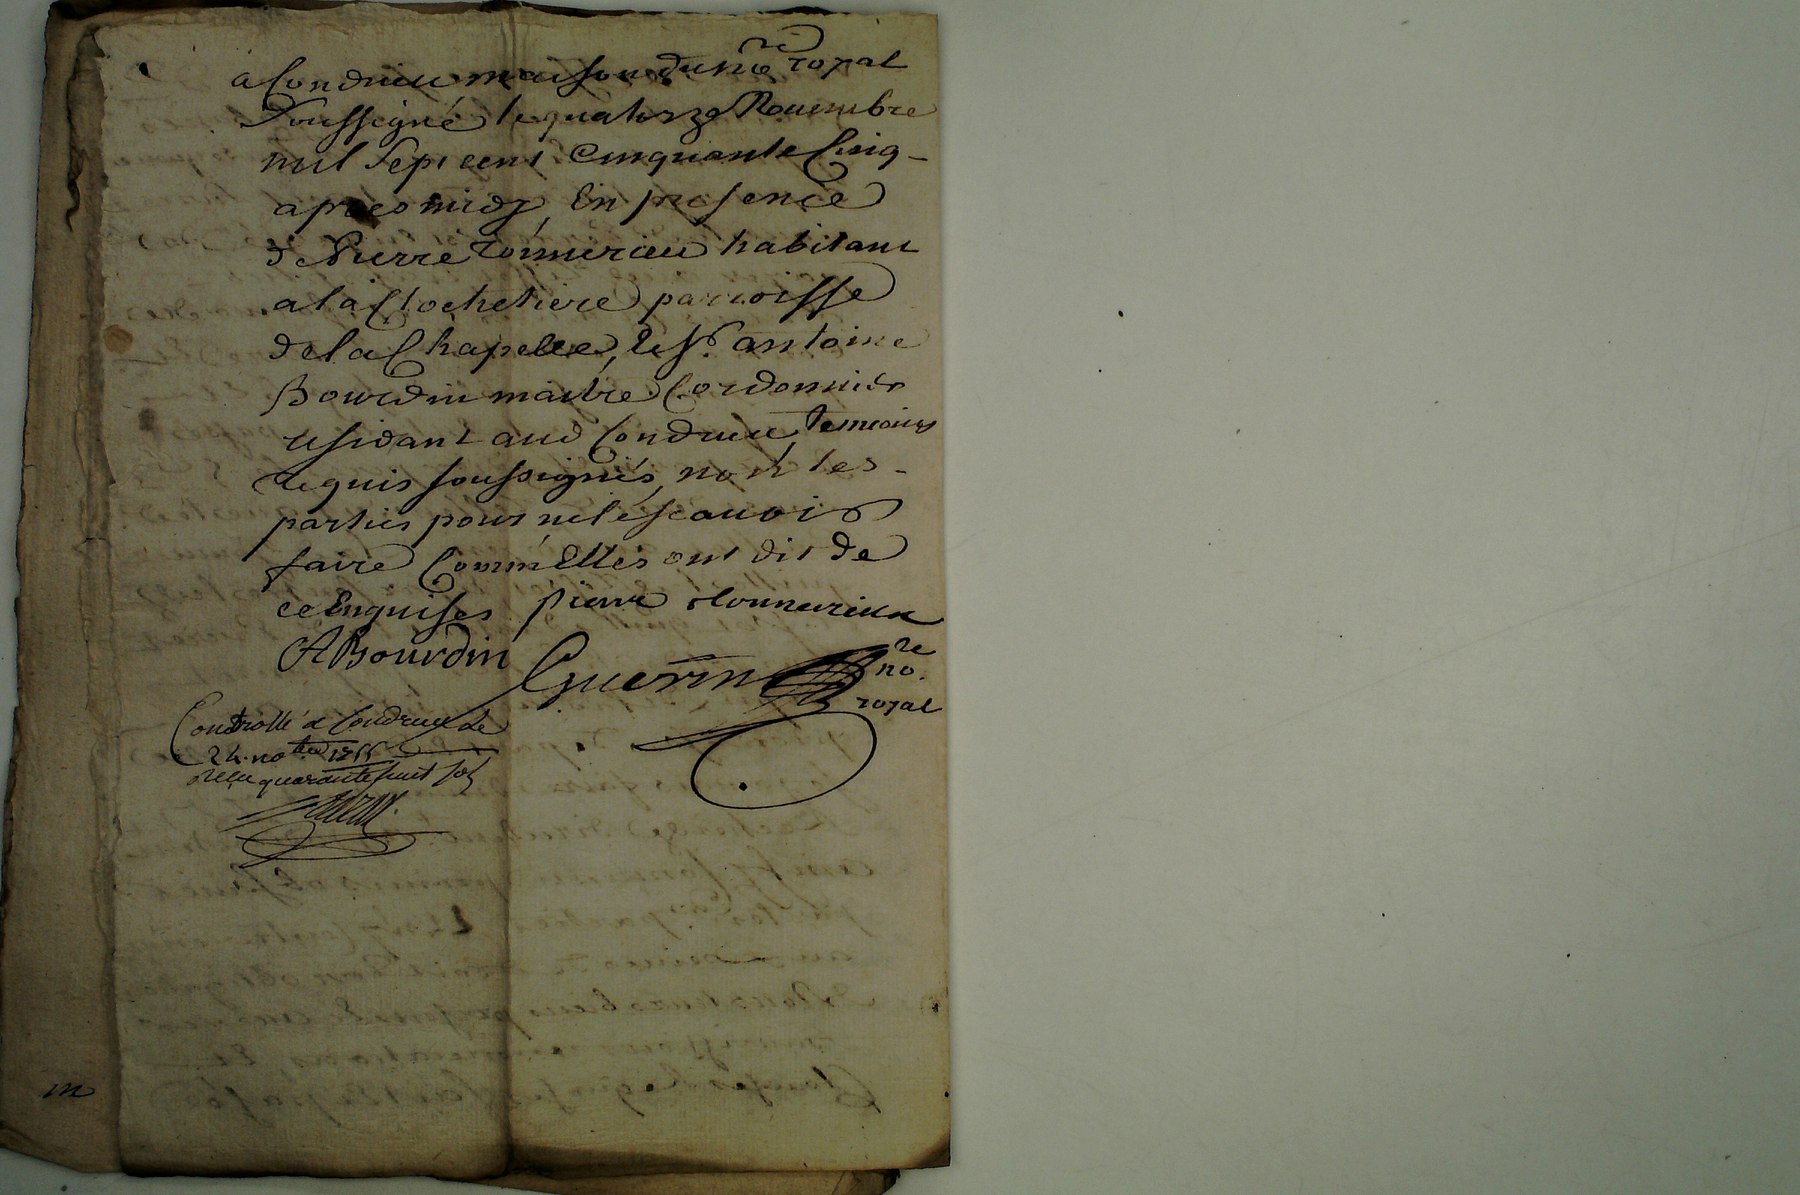 a Condrieu maison du no.re royal
soussigné le quatorze Novembre
mil sept cent cinquante cinq -
apres midy, En presence
de Pierre Tonnerieu habitant
a la Clochetiere parroisse
de la Chapelle, le sr. antoine
Bourdin maitre Cordonnier
residant aud Condrieu, temoins
Requis soussignés, non les -
parties pour ne le scavoir
faire Comm'Elles ont dit de
ce Enquises pierre tonnerieux
ABourdin
Guerin no.re
royal
Controllé a Condrieu le
24. no.bre 1755
recu quarante huit sols
Guerin
m